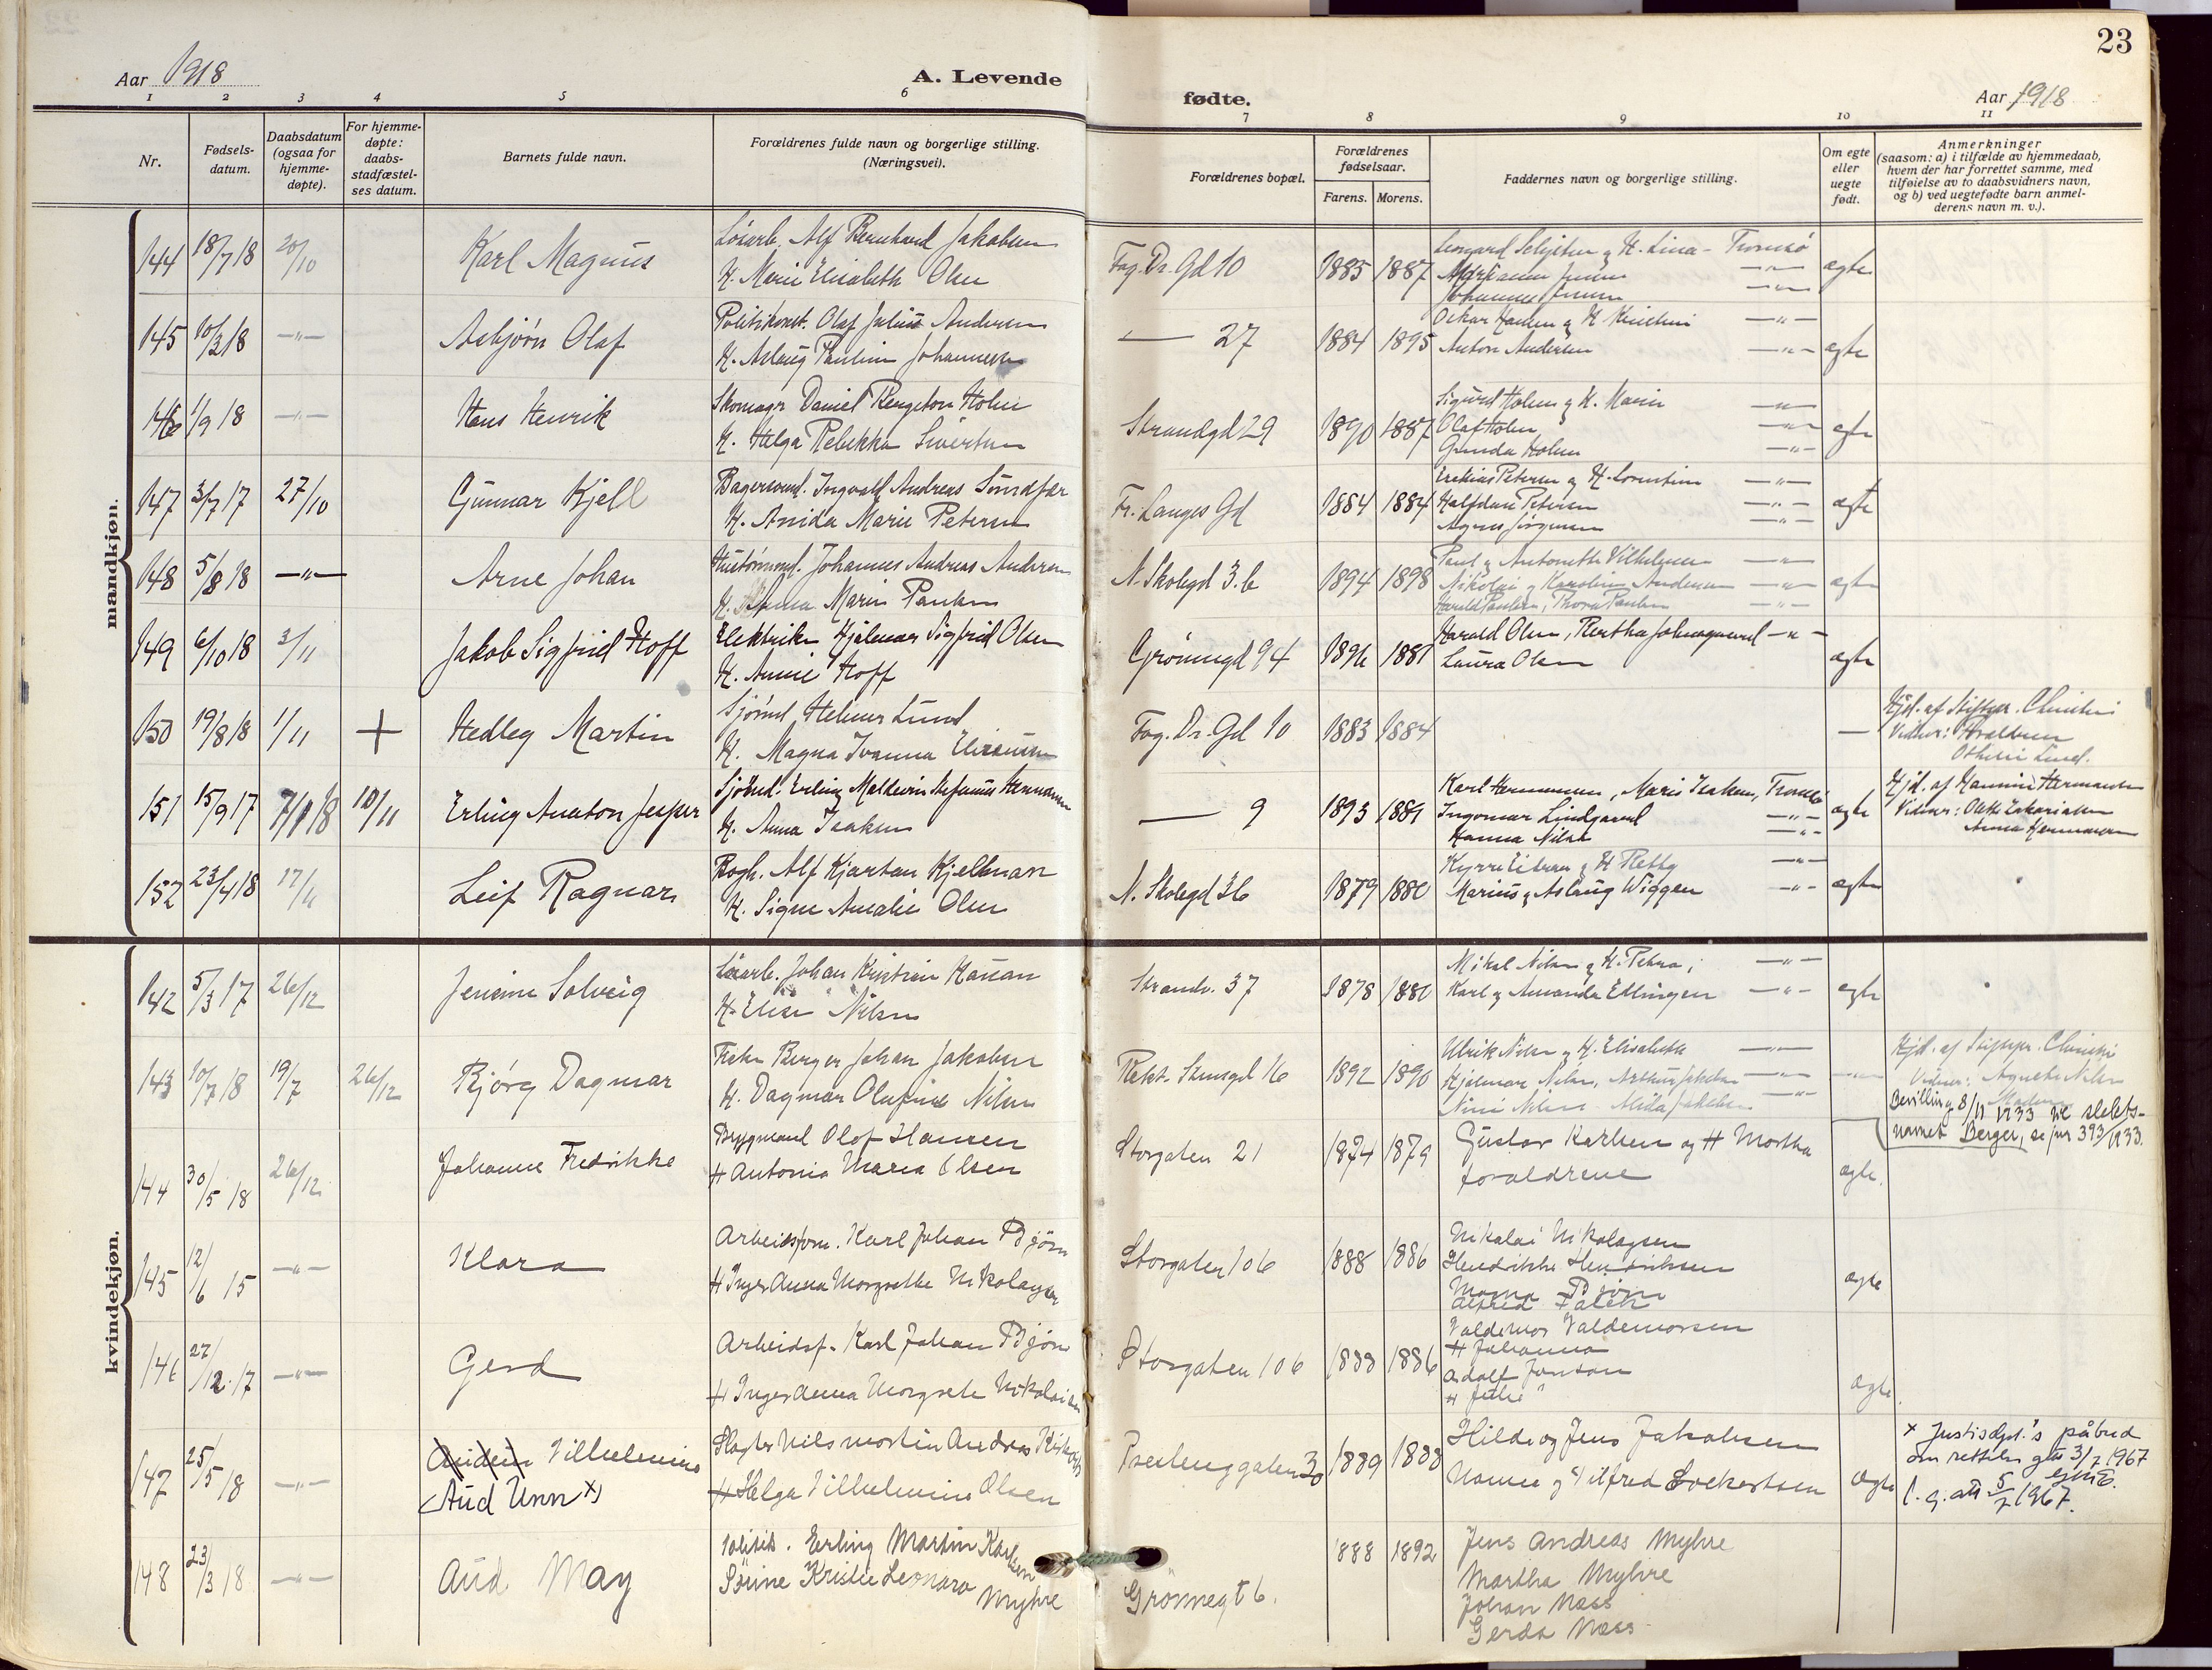 23
Aar 1918
A. Levende
fødte.
Aar 1918
1 2 3 4 5 6 7 8 9 10 11
Nr.
Fødsels-
datum.
Daabsdatum
(ogsaa for
hjemme-
døpte).
For hjemme-
døpte:
daabs-
stadfæstel-
ses datum.
Barnets fulde navn.
Forældrenes fulde navn og borgerlige stilling.
(Næringsvei).
Forældrenes bopæl.
Forældrenes
fødselsaar.
Farens. Morens.
Faddernes navn og borgerlige stilling.
Om egte
eller
uegte
født.
Anmerkninger
(saasom: a) i tilfælde av hjemmedaab,
hvem der har forrettet samme, med
tilføielse av to daabsvidners navn,
og b) ved uegtefødte barn anmel-
derens navn m. v.).
mandkjøn.
144 18/7 18 20/10 Karl Magnus
Løsarb. Alf Bernhard Jakobsen
H. Marie Elisabeth Olsen
Fog. Dr. Gd 10 1885 1887
Tromsø
Johannes Jensen
egte
145 10/3 18 —"— Asbjørn Olaf
Politikonst. Olaf Julius Andersen
H. Aslaug Pauline Johannesen
— 27 1884 1895
Oskar Hansen og H. Kristine —"—
Anton Andersen —"—
egte
146 1/9 18 —"— Hans Henrik
Skomagr Daniel Bengeton Holm
H. Helga Rebekka Sivertsen
Strandgd 29 1890 1887
Sigurd Holm og H. Marie —"—
Olaf Holm —"—
Gunda Holm —"—
egte
147 3/7 17 27/10 Gunnar Kjell
Bagersvend. Ingvald Andreas
H. Anida Marie Petersen
Fr. Langes Gd 1884 1884
Petersen og H. Lorentine —"—
Halfdan Petersen —"—
Agnes Jørgensen —"—
egte
148 5/8 18 —"— Arne Johan
Johannes Andreas Andersen
H. Anna Marie Paulsen
N. Skolegd 3.b 1894 1898
Paul og Antonette Vilhelmsen —"—
Nikolai og Karoline Andersen —"—
Harald Paulsen, Thora Paulsen —"—
egte
149 6/10 18 3/11 Jakob Sigfrid Hoff
Elektriker Hjalmar Sigfrid Olsen
H. Annie Hoff
Grønnegd 94 1896 1881
Harald Olsen, Bertha Johnsgaard —"—
Laura Olsen
egte
150 19/8 18 1/11 + Hedley Martin
Sjømd. Helmer Lund
H. Magna Ivanna
Fog. Dr. Gd 10 1883 1884
—
Hjd. af Stiftspr. Christie
Vidner:
Othilie Lund.
151 15/9 17 7/1 18 10/11 Erling Anaton Jesper
Sjømd. Erling Maldevin Stefanus Hermansen
H. Anna Isaksen
— 9 1893 1881
Karl Hermansen, Marie Isaksen, Tromsø
Ingomar Lindgaard —"—
Hanna Nilsen —"—
egte
Hjd. af Hermansen
Vidner: Zakariassen
Anna Hermansen
152 23/4 18 17/11 Leif Ragnar
Bogh. Alf Kjartan Kjellman
H. Signe Amalie Olsen
N. Skolegd 36 1879 1880
H. Betty —"—
Marius og Aslaug Wiggen —"—
egte
kvindekjøn.
142 5/3 17 26/12 Jensine Solveig
Løsarb. Johan Kristian Hansen
H. Elise Nilsen
Strandv. 37 1878 1880
Mikal Nilsen og H. Petra; —"—
Karl og Amanda Ellingsen —"—
egte
143 10/7 18 19/7 26/12 Bjørg Dagmar
Fisker Berger Johan Jakobsen
H. Dagmar Olufine Nilsen
Rekt. Steensgd 16 1892 1890
Ulrik Nilsen og H. Elisabeth —"—
Hjalmar Nilsen, Arthur Jakobsen —"—
Nini Nilsen Alida Jakobsen —"—
—"—
Hjd. af Stiftspr. Christie
Vidner: Agnete Nilsen
Bevilling 8/11 1933 til slekts-
navnet Berger, se jnr 393/1933.
144 30/5 18 26/12 Johanne Fredrikke
Bryggmand Olof Hansen
H Antonia Maria Olsen
Storgaten 21 1874 1879
Gustav Karlsen og H Martha
forældrene
egte.
145 12/6 15 —"— Klara
Arbeidsform. Karl Johan Bjørn
H Inger Anna Margrethe Nikolaysen
Storgaten 106 1888 1886
Nikolai Nikolaysen
Hendrikke Hendriksen
Bjørn
Alfred Falck
egte
146 27/12. 17 —"— Gerd
Arbeidsf. Karl Johan Bjørn
H Inger Anna Margrete Nikolaisen
Storgaten 106 1888 1886
Valdemar Valdemarsen
H Johanna
Adolf Jonson
H Julie "
egte
147 25/5 18 —"— Vilhelmine
Aud Unn x)
Slagter Nils Martin Andreas
H Helga Vilhelmine Olsen
30 1889 1888
Hilda og Jens Jakobsen
og Vilfred Lockertsen
egte
x Justisdpt.'s påbud
om rettelse gitt 3/7 1967
f. g. att 5/7 1967.
148 23/3 18 —"— Aud May
Politib. Erling Martin Karlsen
Kristie Leonara Myhre
Grønnegt 6. 1888 1892
Jens Andreas Myhre
Martha Myhre
Johan Næss
Gerda Næss